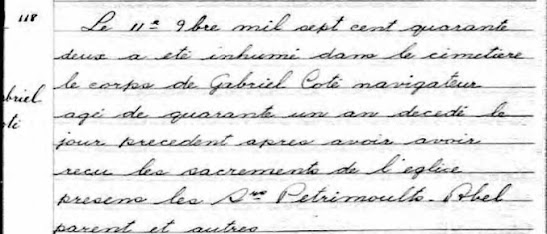 118
Le 11e 9bre mil sept cent quarante
deux a eté inhumé dans le cimetiere
le corps de Gabriel Coté navigateur
agé de quarante un an decedé le
jour precedent apres avoir avoir
recu les sacrements de l'eglise
presens les Srs Petrimoults. Abel
parent et autres
abriel
oté